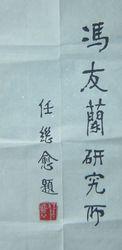 馮友蘭研究所
任继愈題